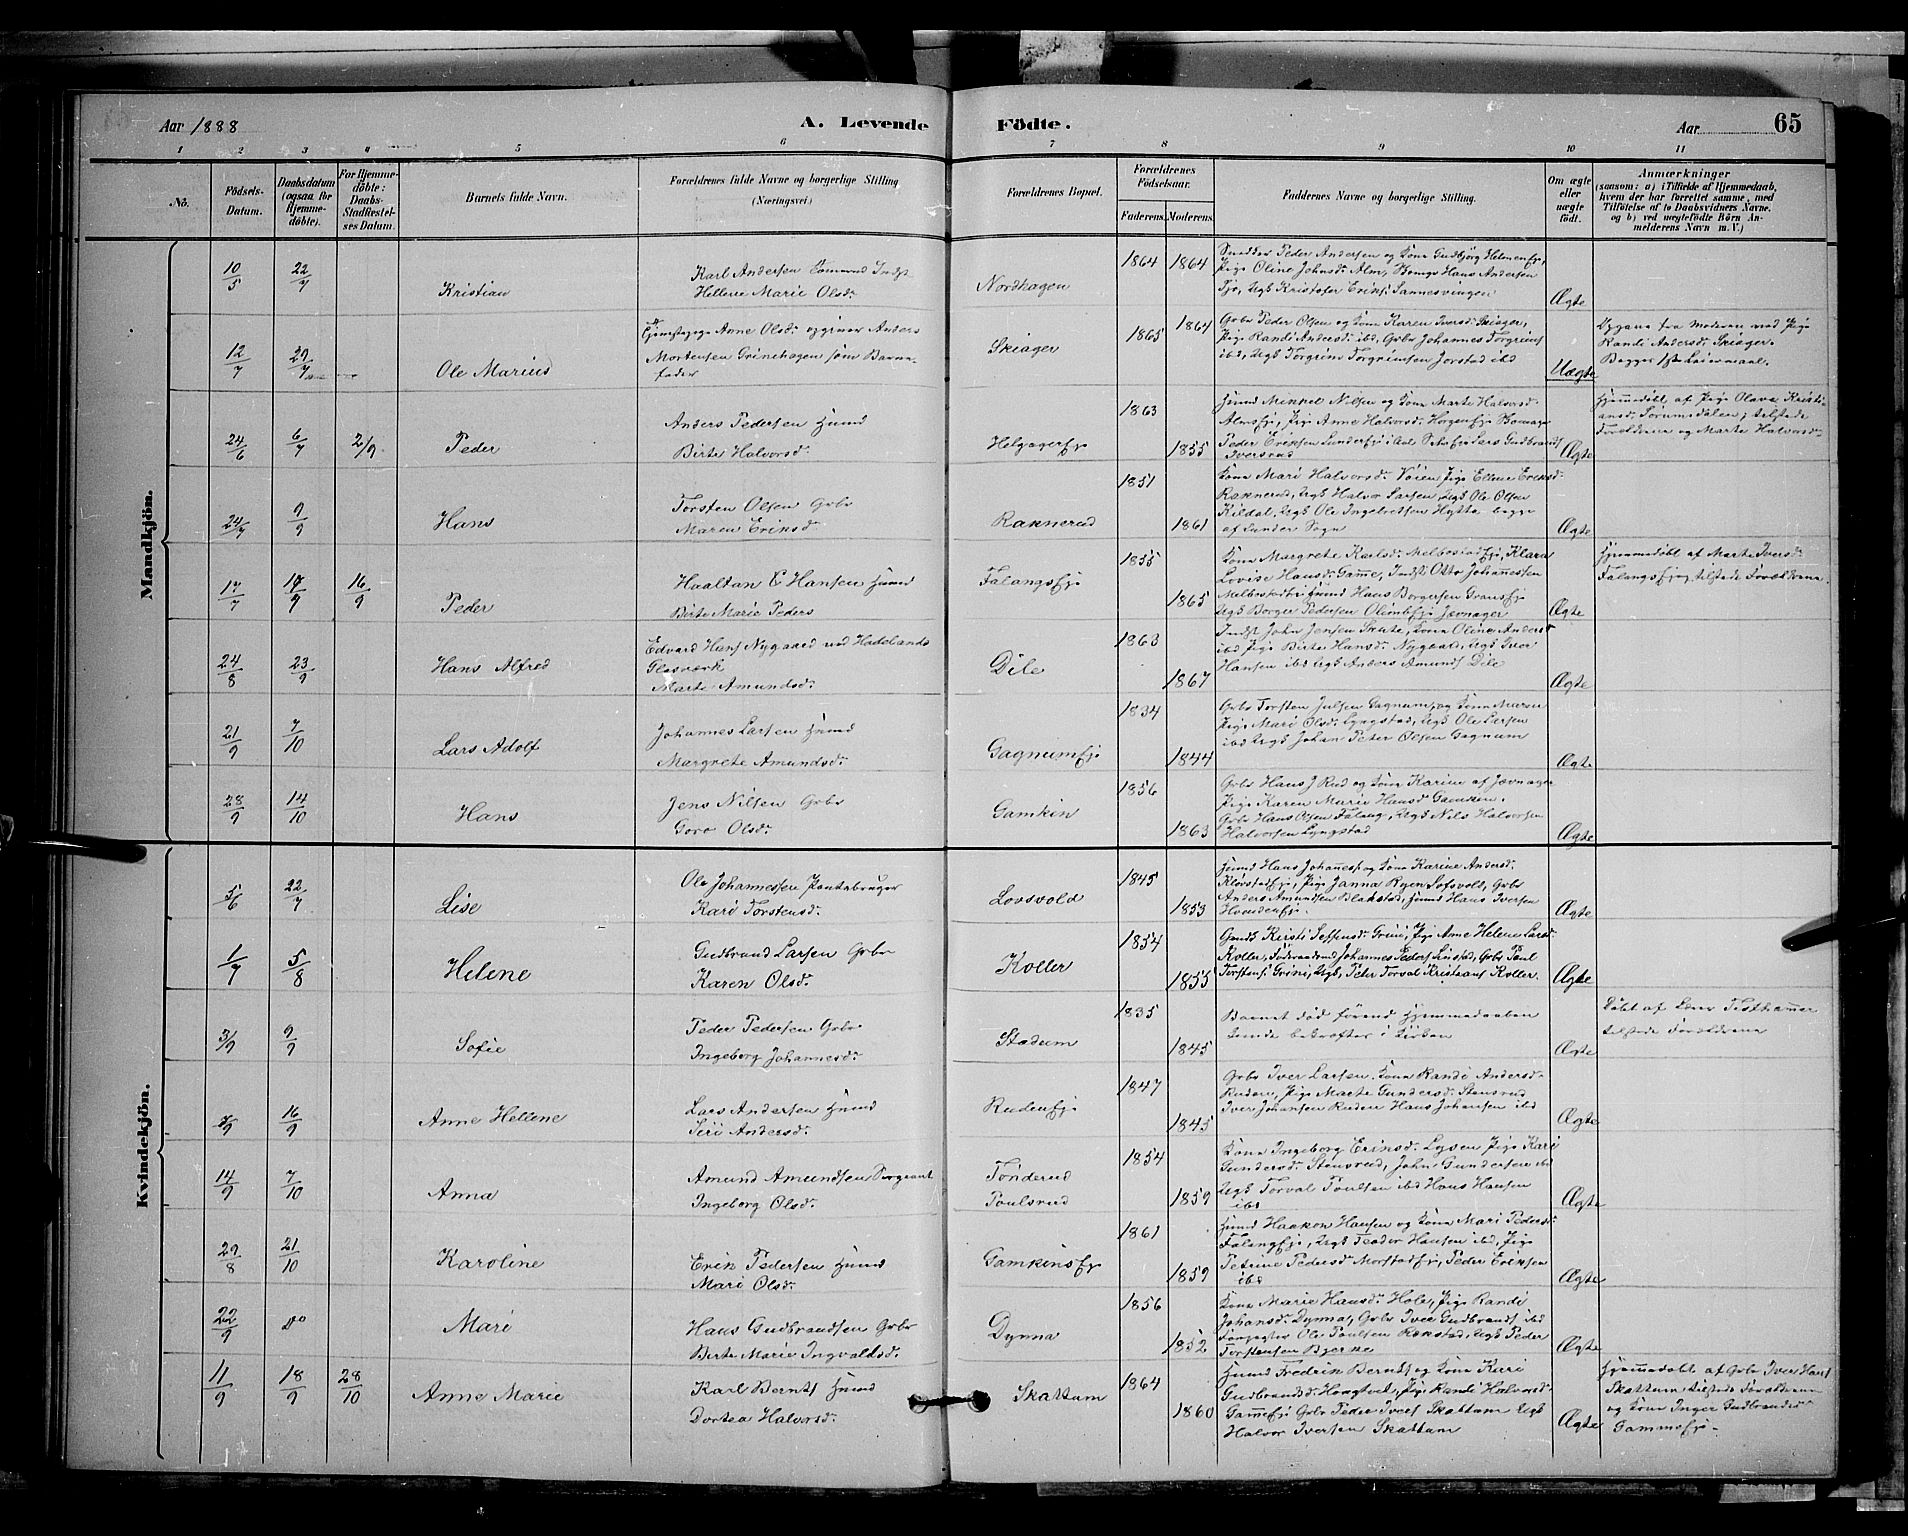 Aar 1888
A. Levende
Födte.
Aar
65
1 2 3 4 5 6 7 8 9 10 11
No.
Födsels-Datum.
Daabsdatum (ogsaa for Hjemmedöbte).
For Hjemmedöbte: Daabs-Stadfæstelses Datum.
Barnets fulde Navn.
Forældrenes fulde Navne og borgerlige Stilling
(Næringsvei.)
Forældrenes Bopæl.
Forældrenes Födselsaar.
Faderens. Moderens.
Faddernes Navne og borgerlige Stilling.
Om ægte eller uægte födt.
Anmærkninger
(saasom: a) i Tilfælde af Hjemmedaab, hvem der har forrettet samme, med Tilföielse af to Daabsvidners Navne, og b) ved uægtefödte Börn Anmelderens Navn m. V.)
Mandkjön.
10/5 22/7 Kristian
Karl Andersen Indst
Hellene Marie Olsd.
Nordhagen 1864 1864
Snedker Peder Andersen og Kona Gudbjørg
Pige Oline Johnsd. Alm, Hans Andersen
Ungk Kristofer Eriks Sannesvingen
Ægte
12/7 29/7 Ole Marius
Tjenestepige Anne Olsd. opgiver Anders
Mortensen Grinehagen som Barne-
fader
Skiager 1865 1864
Grbr Peder Olsen og Kona Karen Iversd. Skiager,
Pige Randi Andersd. ibd, Grbr Johannes Torgrims
ibd, Ungk Torgrim Torgrimsen Jorstad ibd
Uægte
Opgave fra Moderen ved Pige
Randi Andersd. Skiager.
Begges 1ste Leiermaal.
24/6 6/7 2/9 Peder
Anders Pedersen Husmd
Birte Halvorsd.
Helgagerejе 1863 1855
Husmd Mikkel Nilsen og Kona Marte Halvorsd.
Almseje, Pige Anne Halvorsd.
Peder Eriksen Gudbrand
Iversrud
Ægte
Hjemmedöbt af Pige Olava Kristi-
ansd. Sørumsdalen, tilstede
Forældrene og Marte Halvorsd.
24/7 9/9 Hans
Torsten Olsen Grbr
Maren Eriksd.
Raknerud 1851 1861
Kona Mari Halvorsd. Vöien, Pige Ellene Eriksd.
Raknerud, Ungk Halvor Larsen, Ungk Ole Olsen
Kildal, Ungk Ole Ingebretsen Hytta begge
af Lunder Sogn
Ægte
17/7 19/7 16/9 Peder
Haaltan C Hansen Husmd
Birte Marie Peders
Falangseje 1855 1865
Kona Margrete Karlsd. Melbostadeje, Klara
Lovise Hansd. Gamme, Indst Otto Johannessen
Melbostad Husmd Hans Borgersen Granseje
Ungk Borger Pedersen Jævnager
Ægte
Hjemmedöbt af Marte Iversd.
Falangseje, tilstede Forældrene.
24/8 23/9 Hans Alfred
Edvard Hans Nygaard ved Hadelands
Glasværk
Marte Amundsd.
Dile 1863 1867
Indst John Jensen Skute, Kona Oline Andersd
ibd Pige Birte Hansd. Nygaard, Ungk Iver
Hansen ibd Ungk Anders Amunds Dile
Ægte
21/9 7/10 Lars Adolf
Johannes Larsen Husmd
Margrete Amundsd.
Gagnumeje 1834 1844
Grbr Torsten Julsen Gagnum, og Kona Maren
Pige Mari Olsd. Lyngstad, Ungk Ole Larsen
ibd Ungk Johan Peter Olsen Gagnum
Ægte
28/9 14/10 Hans
Jens Nilsen Grbr
Goro Olsd.
Gamkin 1856 1863
Grbr Hans J Rud og Kona Karine af Jævnager
Pige Karen Marie Hansd Gamkin.
Grbr Hans Olsen Falang, Ungk Nils Halvorsen
Halvorsen Lyngstad
Ægte
Kvindekjön.
5/6 22/7 Lise
Ole Johannessen Pantebruger
Kari Torstensd.
Lovsvold 1845 1853
Husmd Hans Johannes og Kona Karine Andersd.
Pige Janna Ryen Lofsvold, Grbr
Anders Amundsen Blakstad, Husmd Hans Iversen
Ægte
1/7 5/8 Helene
Gudbrand Larsen Grbr
Karen Olsd.
Koller 1854 1855
Kristi Grini, Pige Anne Helene Larsd.
Koller, Föderaadsmd Johannes Peders Grbr Paul
Torstens Grini, Ungk. Peter Torval Kristians Koller.
Ægte
3/9 9/9 Sofie
Peder Pedersen Grbr
Ingeborg Johannesd.
Stadum 1835 1845
Barnet död förend Hjemmedaaben
kunde bekræftes i Kirken
Ægte
Döbt af Lærer Tisthammer
tilstede Forældrene
7/9 16/9 Anne Hellene
Lars Andersen Husmd
Siri Andersd.
Rudeneje 1847 1845
Grbr Iver Larsen, Kona Randi Andersd.
Ruden, Pige Marte Gundersd. Stensrud
Iver Johansen Ruden Hans Johansen ibd
Ægte
14/9 7/10 Anna
Amund Amundsen Sergeant
Ingeborg Olsd.
Tönderud
Poulsrud 1854 1859
Kona Ingeborg Eriksd. Lysen Pige Kari
Gundersd. Stensrud, John Gundersen ibd
Ungk Torval Poulsen ibd Hans Hansen
ibd
Ægte
29/8 21/10 Karoline
Erik Pedersen Husmd
Mari Olsd.
Gamkinseje 1861 1859
Husmd Haakon Hansen og Kona Mari Pedersd.
Falangeje, Ungk Hansen ibd, Pige
Petrine Pedersd Morstadeje, Peder Eriksen
ibd
Ægte
22/9 do Mari
Hans Gudbrandsen Grbr
Birte Marie Ingvaldsd.
Dynna 1856 1852
Kona Marie Hansd. Hole, Pige Randi
Johansd. Dynna, Grbr Iver Gudbrands ibd
Ole Poulsen Rækstad, Ungk Peder
Torstensen Bjerke
Ægte
11/9 18/9 28/10 Anne Marie
Karl Bernts Husmd
Dortea Halvorsd.
Skattum 1864 1860
Husmd Fredrik Bernts og Kona Kari
Gudbrandsd. Hougtvet, Pige Randi Halvorsd.
Gammeje Grbr Peder Ivers Skattum Ungk
Halvor Iversen Skattum
Ægte
Hjemmedöbt af Grbr Iver Hans
Skattum tilstede Forældrene
og Kona Inger Gudbrandsd.
Gammeje.